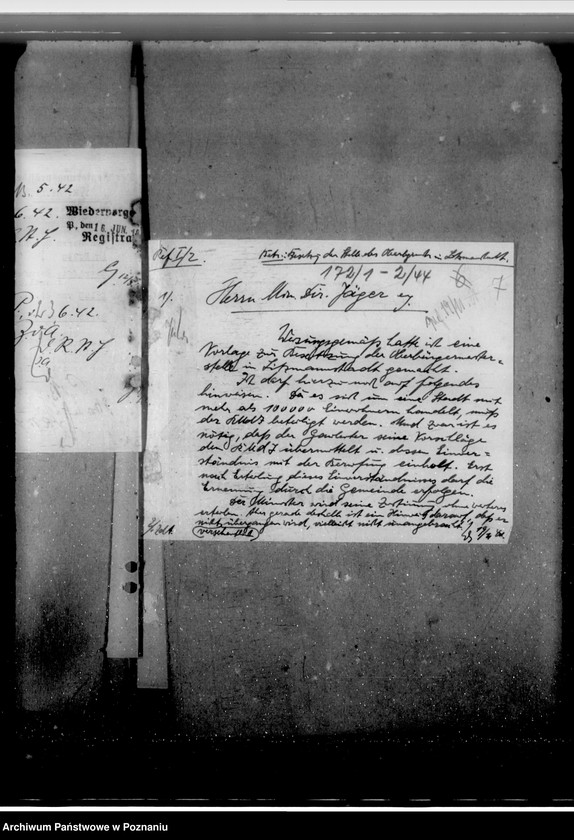 5.42
6.42.
Wiedervorge
P., den 16. JUN.
Registra
6.42.
Ref I/2.
Betr.: Besetzg der Stelle des Oberbgmstrs in Litzmannstadt.
172/1 - 2/44
6 7
1/.
Herrn Min Dir. Jäger
Weisungsgemäß hatte ich eine
Vorlage zur Besetzung der Oberbürgermeister=
stelle in Litzmannstadt gemacht.
Ich darf hierzu noch auf folgendes
hinweisen. Da es sich um eine Stadt mit
mehr als 100000 Einwohnern handelt, muß
der RMdJ beteiligt werden. Und zwar ist es
nötig, daß der Gauleiter seine Vorschläge
dem RMdJ übermittelt u. dessen Einver=
ständnis mit der Berufung einholt. Erst
nach Erteilung dieses Einverständnisses darf die
Ernennung durch die Gemeinde erfolgen.
Der Minister wird seine Zustimmung ohne weiteres
erteilen. Aber gerade deshalb ist ein Hinweis darauf, daß er
nicht übergangen wird, vielleicht nicht unangebracht.
Archiwum Państwowe w Poznaniu